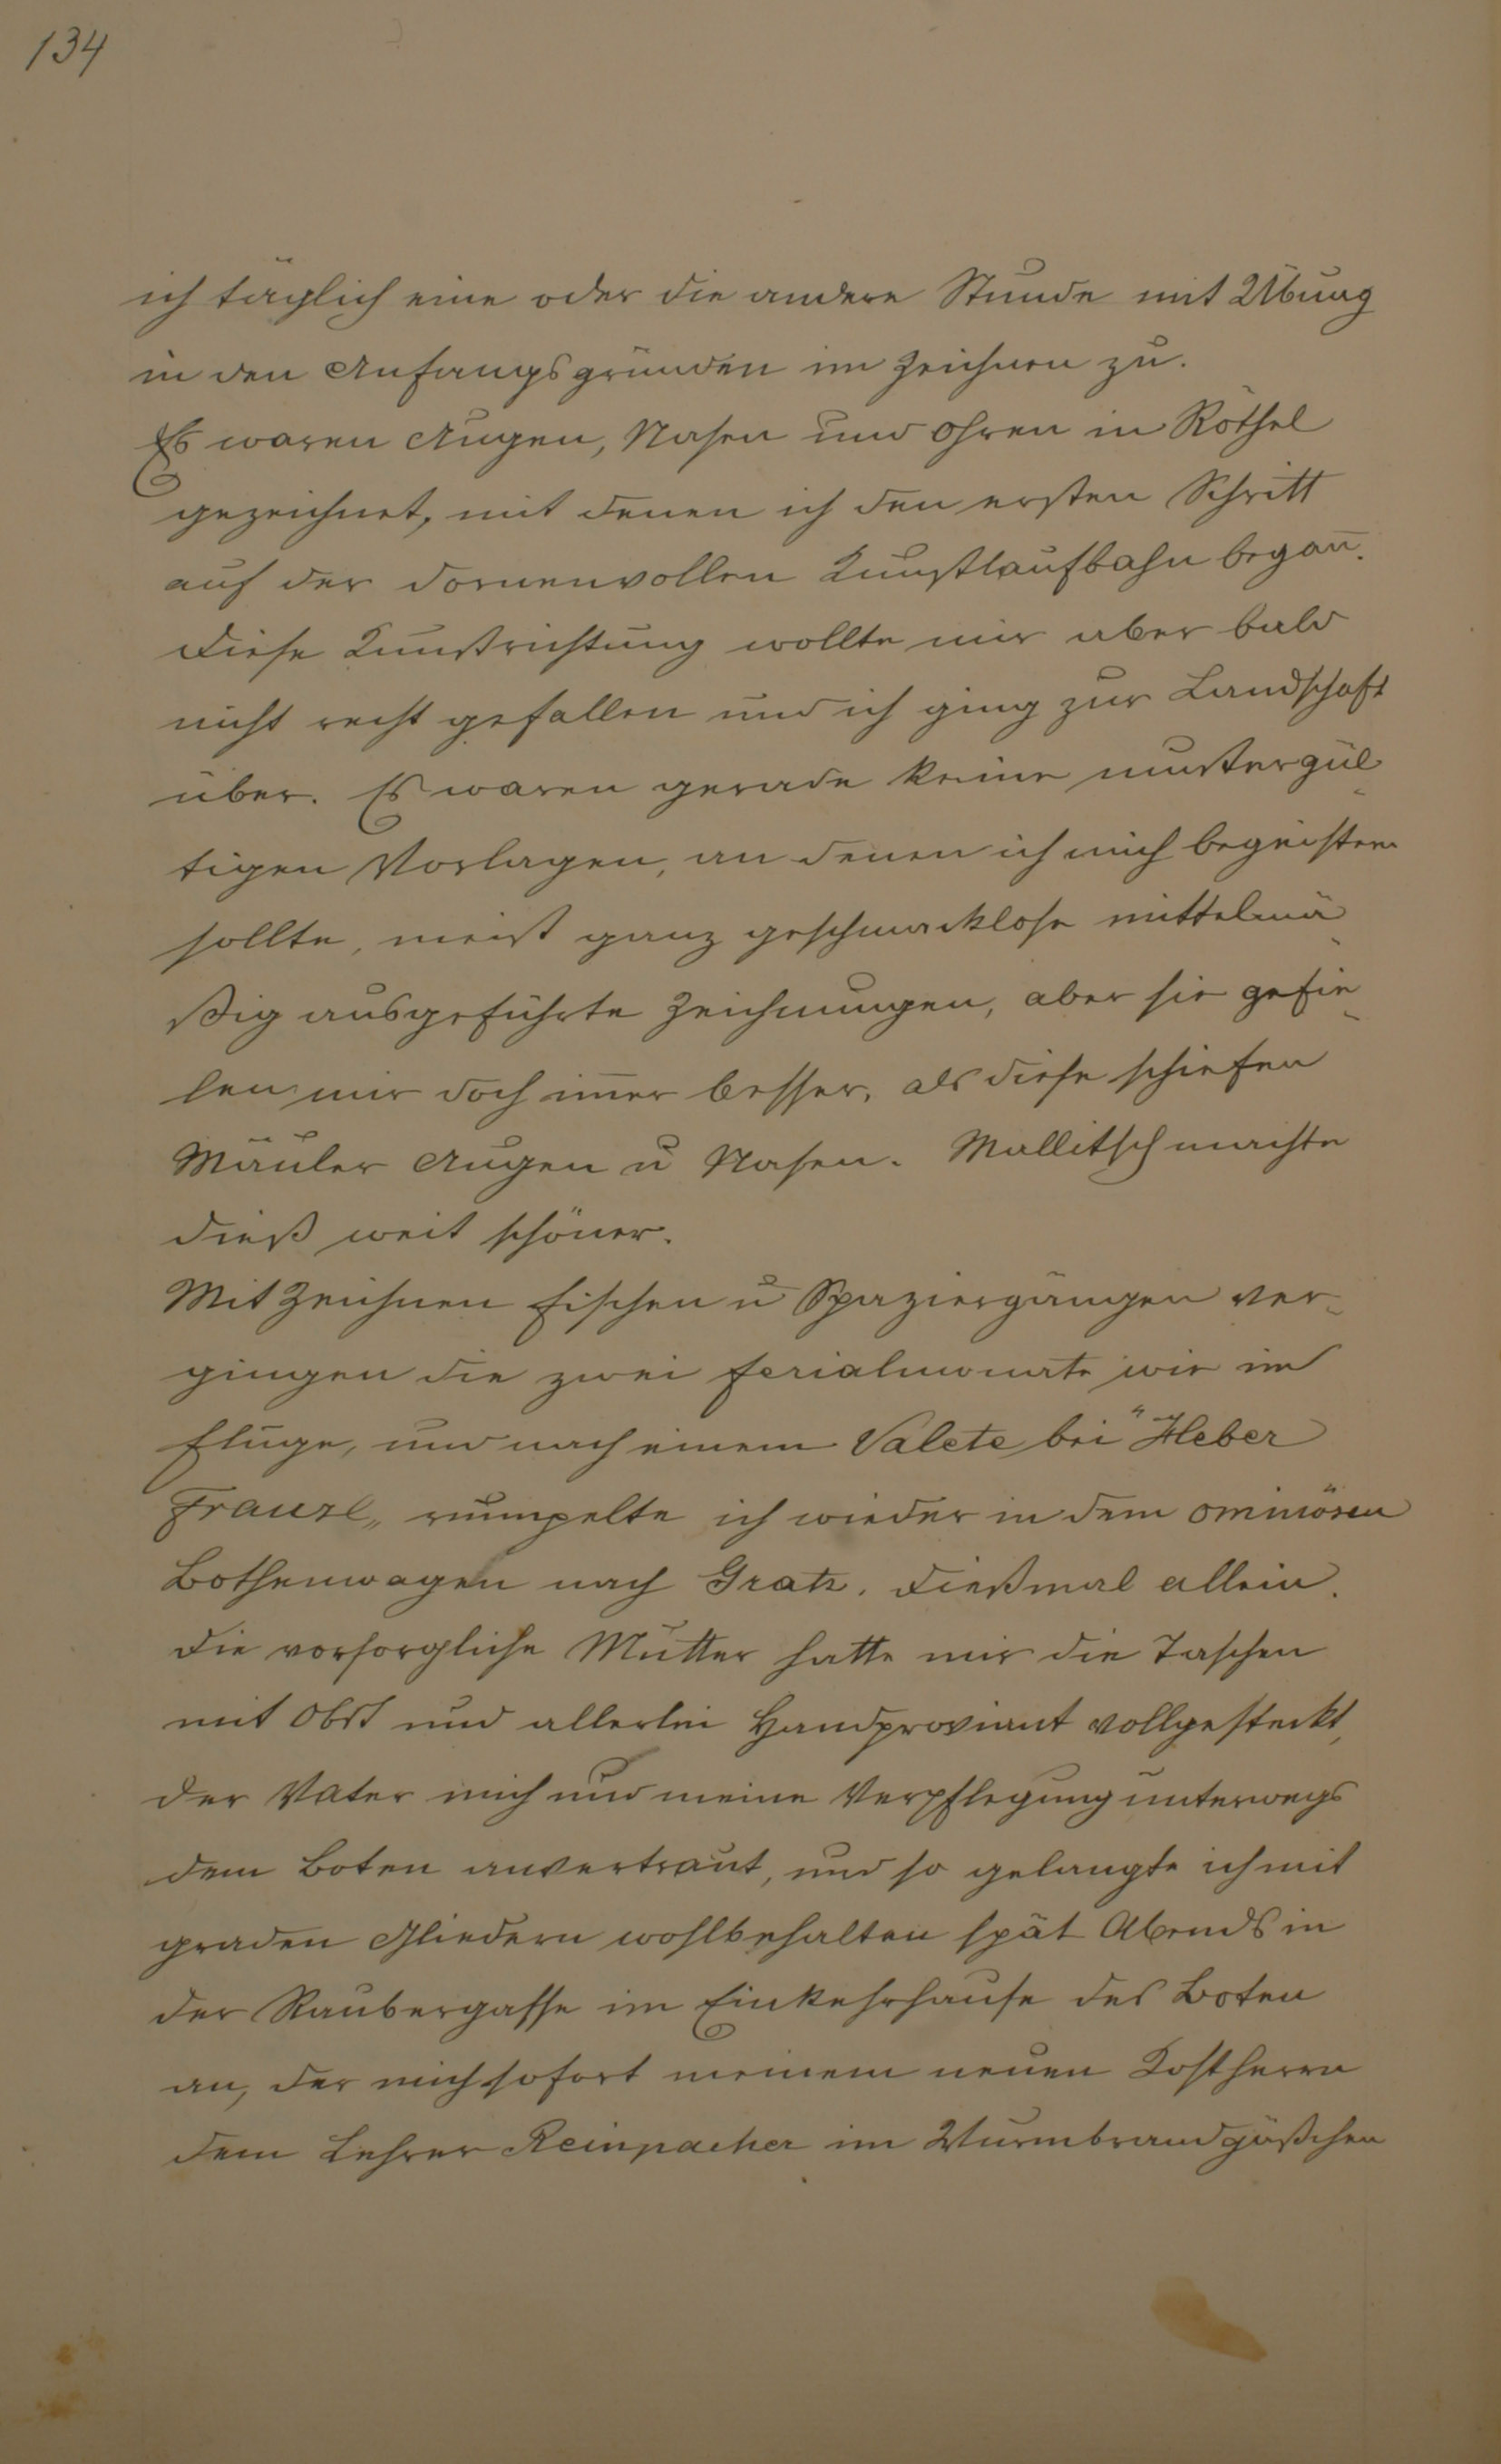 134
ich täglich eine oder die andere Stunde mit Übung
in den Anfangsgründen im Zeichnen zu.
Es waren Augen, Nasen und Ohren in Röthel
gezeichnet, mit denen ich den ersten Schritt
auf der dornenvollen Kunstlaufbahn began̄.
Diese Kunstrichtung wollte mir aber bald
nicht recht gefallen und ich ging zur Landschaft
über. Es waren gerade keine mustergül-
tigen Vorlagen, an denen ich mich begeistern
sollte, meist ganz geschmacklose mittelmä-
ßig ausgeführte Zeichnungen, aber sie gefie-
len mir doch im̄er besser, als diese schiefen
Mäuler Augen u Nasen. Mallitsch machte
dieß weit schöner.
Mit Zeichnen Fischen u Spaziergängen ver-
gingen die zwei Ferialmonate wie im
Fluge, und nach einem Valete bei "Heber
Franzl„ rumpelte ich wieder in dem ominösen
Bothenwagen nach Gratz. Dießmal allein.
Die vorsorgliche Mutter hatte mir die Taschen
mit Obst und allerlei Handproviant vollgesteckt,
der Vater mich und meine Verpflegung unterwegs
dem Boten anvertraut, und so gelangte ich mit
graden Gliedern wohlbehalten spät Abends in
der Raubergasse im Einkehrhause des Boten
an, der mich sofort meinem neuen Kostherrn
dem Lehrer Reinpacher im Wurmbrandgäßchen